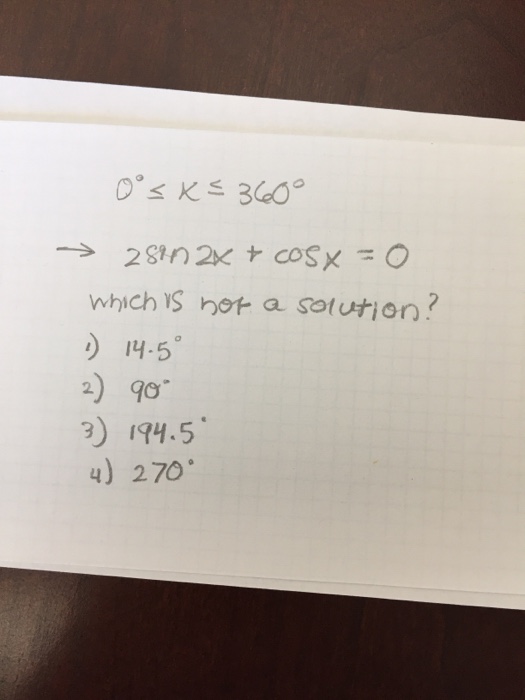 0° ≤ x ≤ 360°
→ 2 sin 2x + cos x = 0
which is not a solution?
1) 14.5°
2) 90°
3) 194.5°
4) 270°